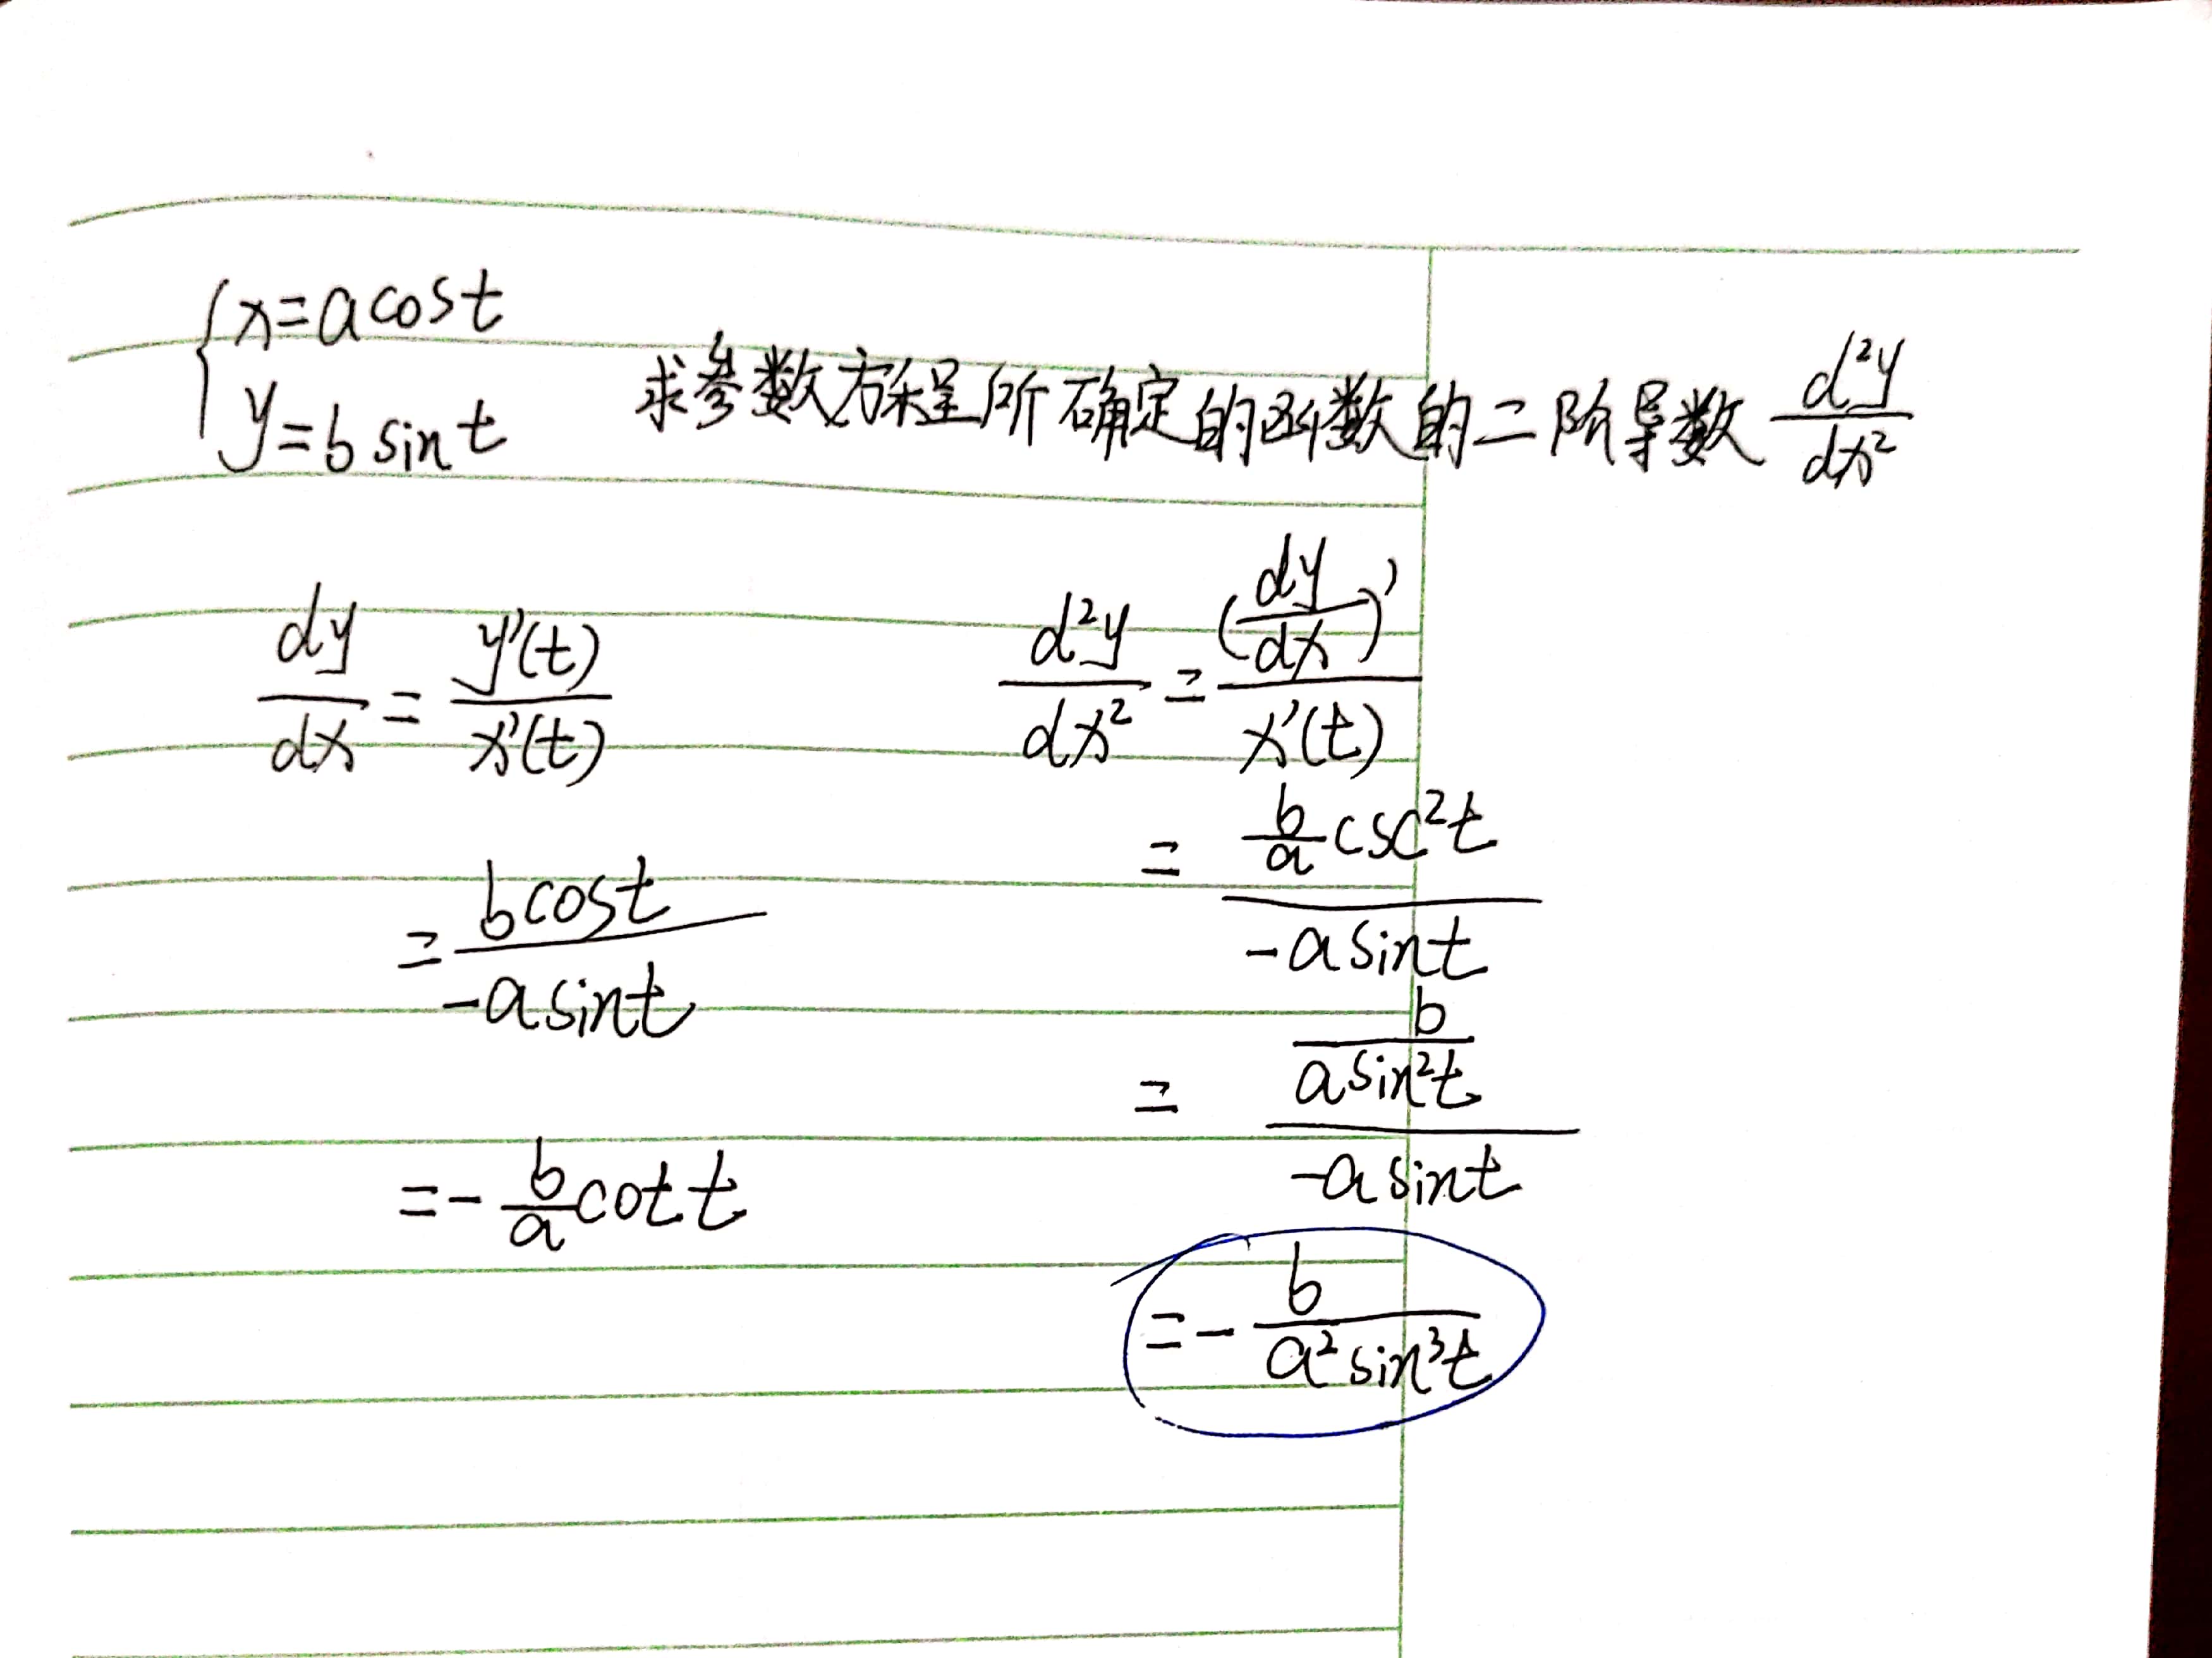 {x=acost
y=bsint 求参数方程所确定的函数的二阶导数 d²y/dx²
dy/dx = y'(t)/x'(t)
= bcost/-asint
=-b/a cot t
d²y/dx² = (dy/dx)'/x'(t)
= b/a csc²t/-asint
= b/asin²t/-asint
=-b/a²sin³t